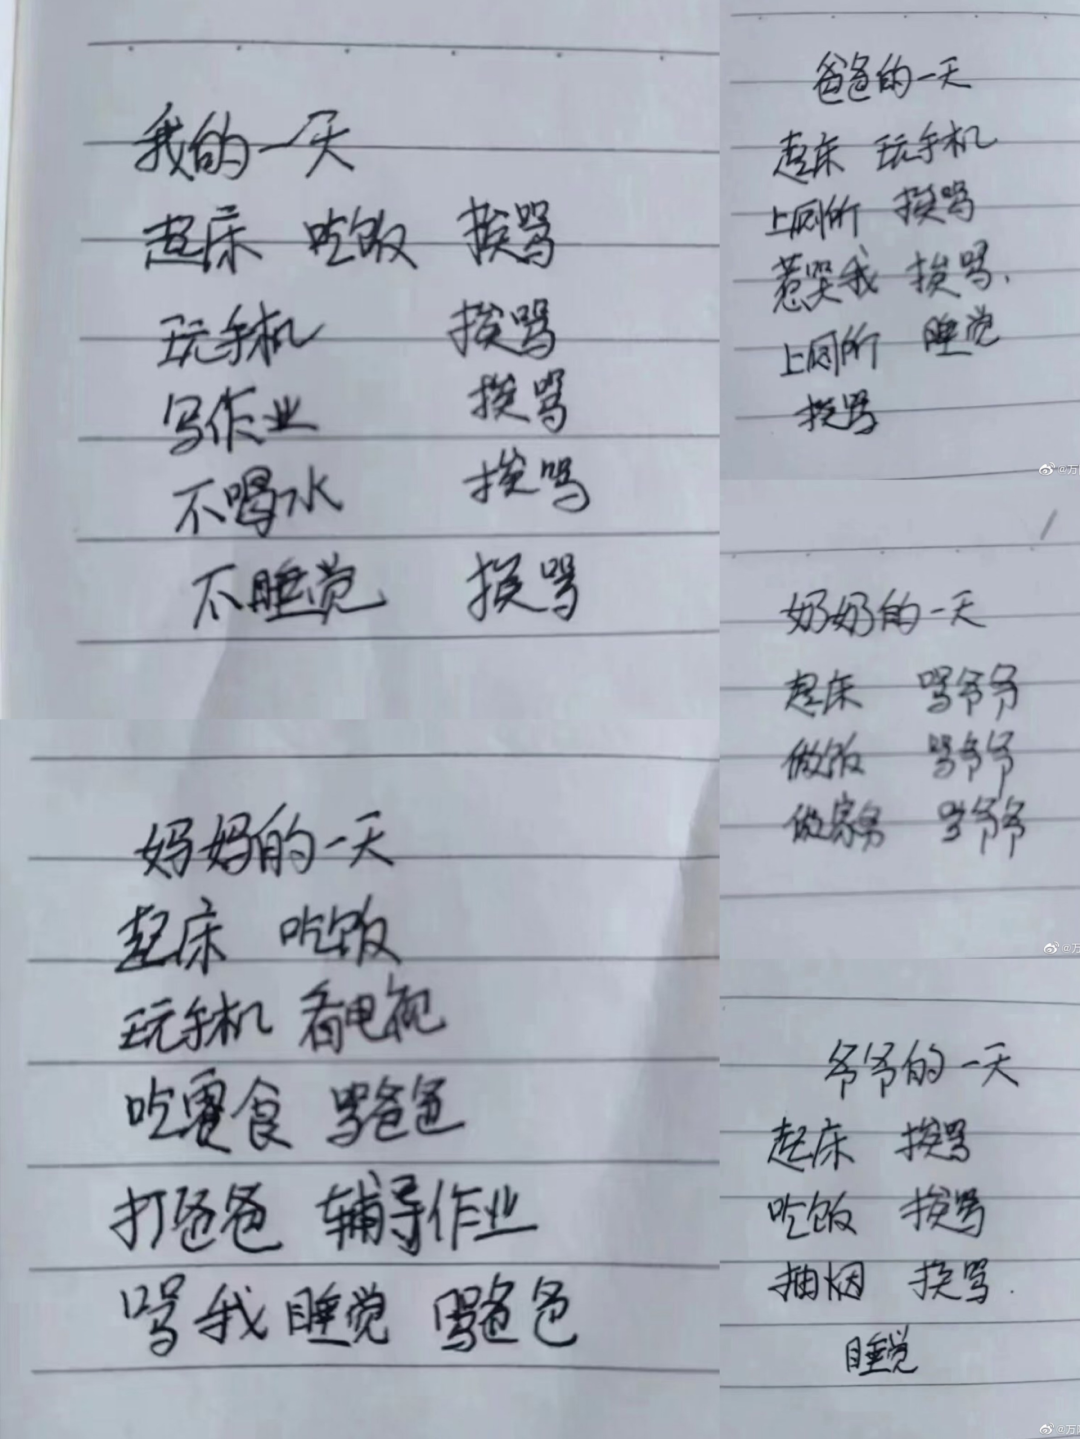 我的一天
起床 吃饭 挨骂
玩手机 挨骂
写作业 挨骂
不喝水 挨骂
不睡觉 挨骂
妈妈的一天
起床 吃饭
玩手机 看电视
吃零食 骂爸爸
打爸爸 辅导作业
骂我 睡觉 骂爸爸
爸爸的一天
起床 玩手机
上厕所 挨骂
惹哭我 挨骂.
上厕所 睡觉
挨骂
奶奶的一天
起床 骂爷爷
做饭 骂爷爷
做家务 骂爷爷
爷爷的一天
起床 挨骂
吃饭 挨骂
抽烟 挨骂.
睡觉